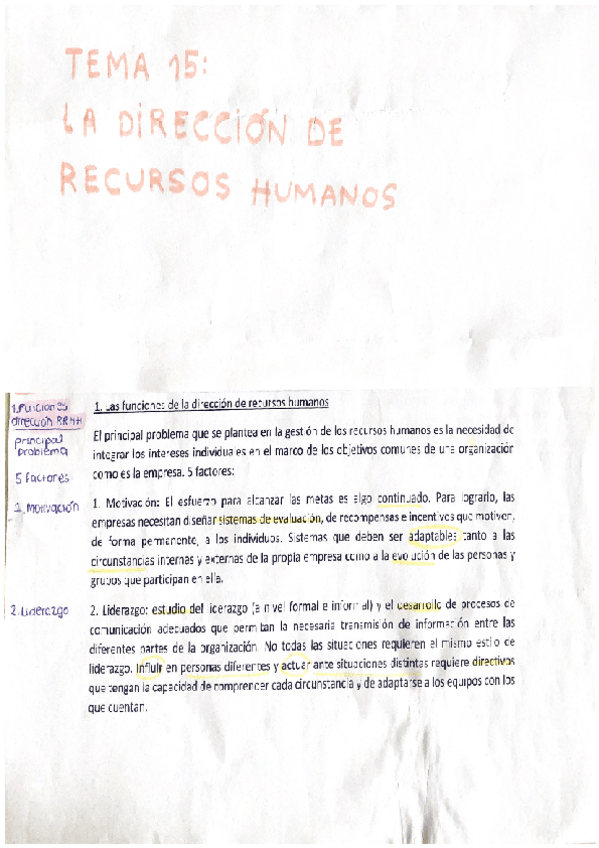 TEMA 15:
LA DIRECCIÓN DE
RECURSOS HUMANOS
1. Funciones
dirección RRHH
Principal
problema
5 Factores
1. Motivación
2. Liderazgo
1. Las funciones de la dirección de recursos humanos
El principal problema que se plantea en la gestión de los recursos humanos es la necesidad de
integrar los intereses individuales en el marco de los objetivos comunes de una organización
como es la empresa. 5 factores:
1. Motivación: El esfuerzo para alcanzar las metas es algo continuado. Para lograrlo, las
empresas necesitan diseñar sistemas de evaluación, de recompensas e incentivos que motiven,
de forma permanente, a los individuos. Sistemas que deben ser adaptables tanto a las
circunstancias internas y externas de la propia empresa como a la evolución de las personas y
grupos que participan en ella.
2. Liderazgo: estudio del liderazgo (a nivel formal e informal) y el desarrollo de procesos de
comunicación adecuados que permitan la necesaria transmisión de información entre las
diferentes partes de la organización. No todas las situaciones requieren el mismo estilo de
liderazgo. Influir en personas diferentes y actuar ante situaciones distintas requiere directivos
que tengan la capacidad de comprender cada circunstancia y de adaptarse a los equipos con los
que cuentan.